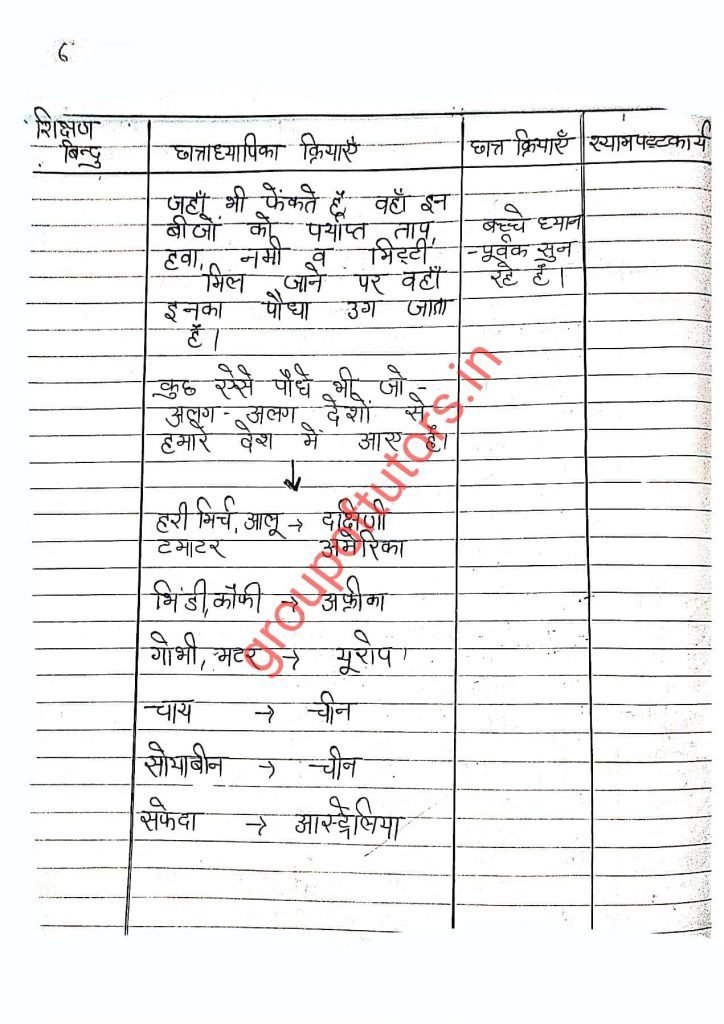 6
शिक्षण
बिन्दु
छात्राध्यापिका क्रियाएँ
छात्र क्रियाएँ
श्यामपट्टकार्य
जहाँ भी फेंकते हैं, वहाँ इन
बीजों को पर्याप्त ताप,
हवा, नमी व मिट्टी
मिल जाने पर वहाँ
इनका पौधा उग जाता
है।
बच्चे ध्यान
-पूर्वक सुन
रहे हैं।
कुछ ऐसे पौधे भी जो-
अलग-अलग देशों से
हमारे देश में आए हैं।
↓
हरी मिर्च, आलू → दक्षिणी
टमाटर अमेरिका
भिंडी, कॉफी → अफ्रीका
गोभी, मटर → यूरोप
चाय → चीन
सोयाबीन → चीन
सफेदा → आस्ट्रेलिया
groupoftutors.in